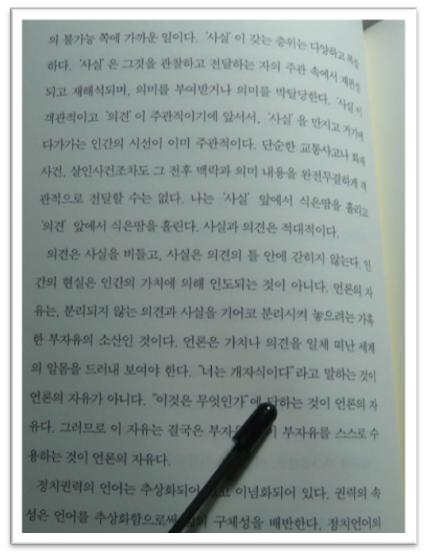 의 불가능 쪽에 가까운 일이다. '사실'이 갖는 층위는 다양하고 복잡
하다. '사실'은 그것을 관찰하고 전달하는 자의 주관 속에서 재편성
되고 재해석되며, 의미를 부여받거나 의미를 박탈당한다. '사실'이
객관적이고 '의견'이 주관적이기에 앞서서, '사실'을 만지고 거기에
다가가는 인간의 시선이 이미 주관적이다. 단순한 교통사고나 화재
사건, 살인사건조차도 그 전후 맥락과 의미 내용을 완전무결하게 객
관적으로 전달할 수는 없다. 나는 '사실' 앞에서 식은땀을 흘리고
'의견' 앞에서 식은땀을 흘린다. 사실과 의견은 적대적이다.
의견은 사실을 비틀고, 사실은 의견의 틀 안에 갇히지 않는다. 인
간의 현실은 인간의 가치에 의해 인도되는 것이 아니다. 언론의 자
유는, 분리되지 않는 의견과 사실을 기어코 분리시켜 놓으려는 가혹
한 부자유의 소산인 것이다. 언론은 가치나 의견을 일체 떠난 세계
의 알몸을 드러내 보여야 한다. "너는 개자식이다"라고 말하는 것이
언론의 자유가 아니다. "이것은 무엇인가"에 답하는 것이 언론의 자
유다. 그러므로 이 자유는 결국은 부자유 이 부자유를 스스로 수
용하는 것이 언론의 자유다.
정치권력의 언어는 추상화되어 이념화되어 있다. 권력의 속
성은 언어를 추상화함으로써 구체성을 배반한다. 정치언어의